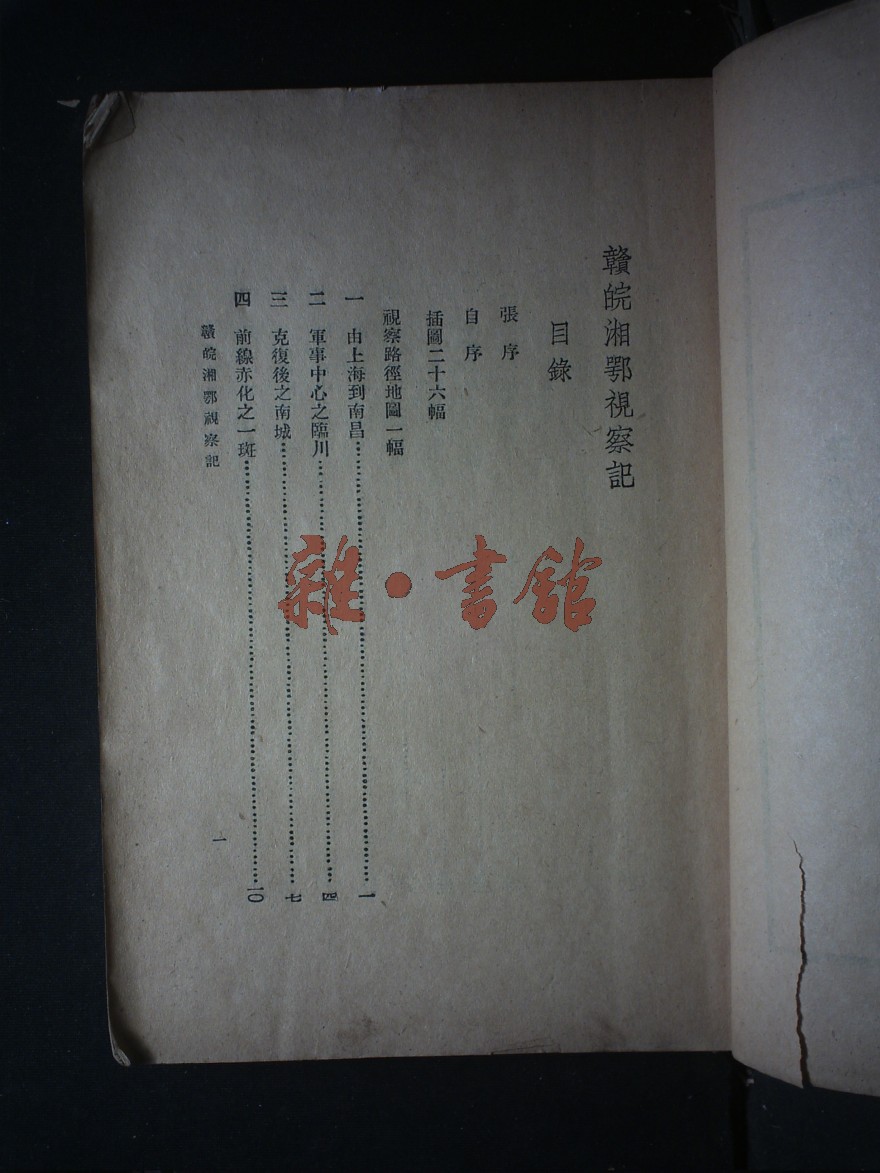 贛皖湘鄂視察記
目錄
張序
自序
插圖二十六幅
視察路徑地圖一幅
一 由上海到南昌……一
二 軍事中心之臨川……四
三 克復後之南城……七
四 前線赤化之一斑……一〇
贛皖湘鄂視察記 一
雜·書館